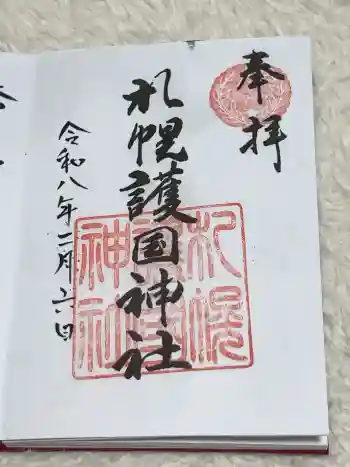 奉拝
札幌護国神社
令和八年二月六日
札幌
護国
神社